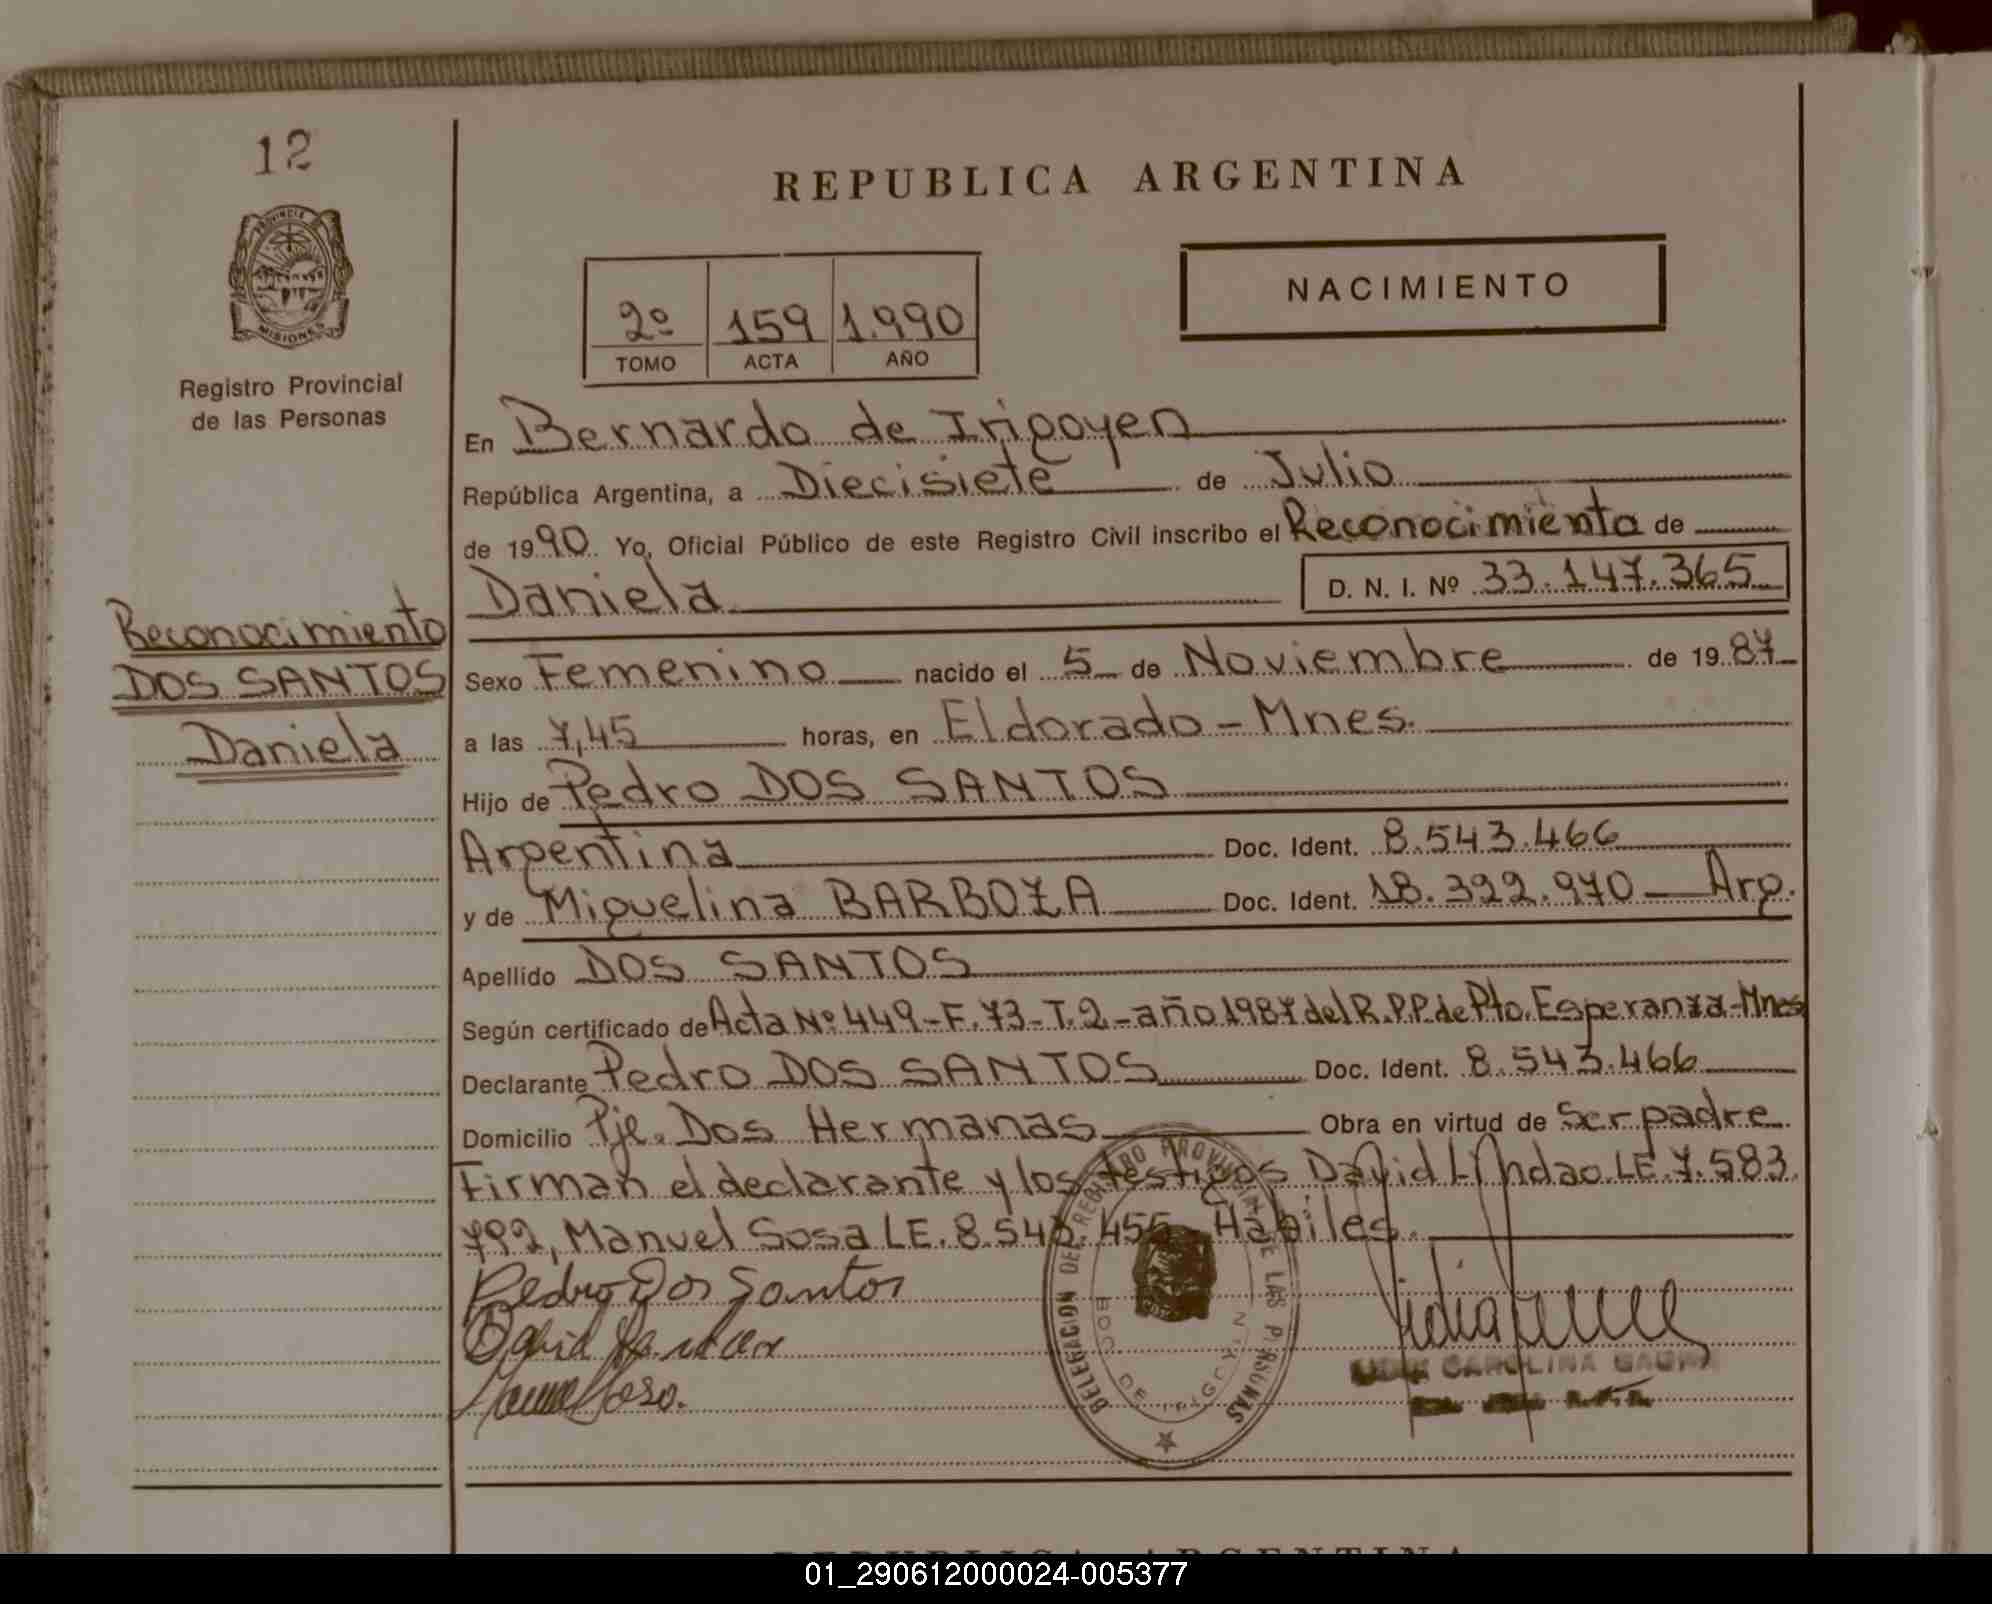 12
PROVINCIA
MISIONES
Registro Provincial
de las Personas
REPUBLICA ARGENTINA
NACIMIENTO
2º 159 1.990
TOMO ACTA AÑO
En Bernardo de Irigoyen
República Argentina, a Diecisiete de Julio
de 1990 Yo, Oficial Público de este Registro Civil inscribo el Reconocimiento de
Daniela D. N. I. Nº 33.147.365
Reconocimiento
DOS SANTOS
Daniela
Sexo Femenino nacido el 5 de Noviembre de 1987
a las 7,45 horas, en Eldorado - Mnes.
Hijo de Pedro DOS SANTOS
Argentina Doc. Ident. 8.543.466
y de Miguelina BARBOZA Doc. Ident. 18.322.970 - Arg.
Apellido DOS SANTOS
Según certificado de Acta Nº 449-F.73-T.2-año 1987 del R.P.P. de Pto. Esperanza-Mnes
Declarante Pedro DOS SANTOS Doc. Ident. 8.543.466
Domicilio Pje. Dos Hermanas Obra en virtud de Ser padre
Firman el declarante y los testigos David LE. 7.583.
792, Manuel Sosa LE. 8.543.455 - Hábiles.
Pedro Dos Santos
Manuel Sosa.
DELEGACION DEL REGISTRO PROVINCIAL DE LAS PERSONAS
BDO. DE IRIGOYEN
CAROLINA
REPUBLICA ARGENTINA
01_290612000024-005377